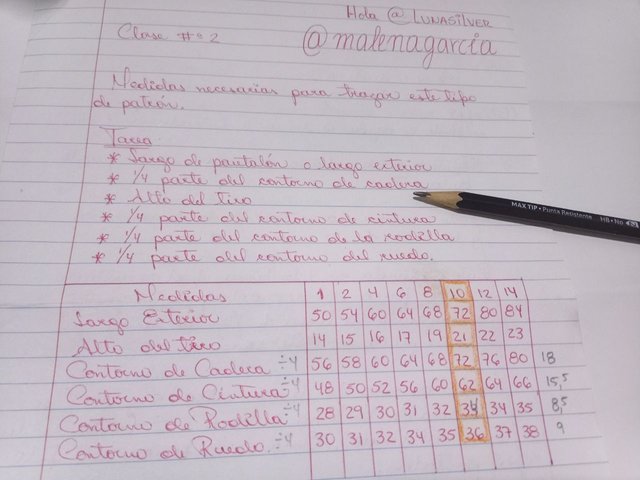 Hola @LUNASILVER
Clase #º2
@malenagarcia
Medidas necesarias para trazar este tipo
de patrón.
Tarea
* Largo de pantalón o largo exterior
* 1/4 parte del contorno de cadera
* Alto del tiro
* 1/4 parte del contorno de cintura
* 1/4 parte del contorno de la rodilla
* 1/4 parte del contorno del ruedo.
MAX TIP • Punta Resistente HB • No 2½
Medidas 1 2 4 6 8 10 12 14
Largo Exterior 50 54 60 64 68 72 80 84
Alto del tiro 14 15 16 17 19 21 22 23
Contorno de Cadera ÷4 56 58 60 64 68 72 76 80 18
Contorno de Cintura ÷4 48 50 52 56 60 62 64 66 15,5
Contorno de Rodilla ÷4 28 29 30 31 32 34 34 35 8,5
Contorno de Ruedo. ÷4 30 31 32 34 35 36 37 38 9